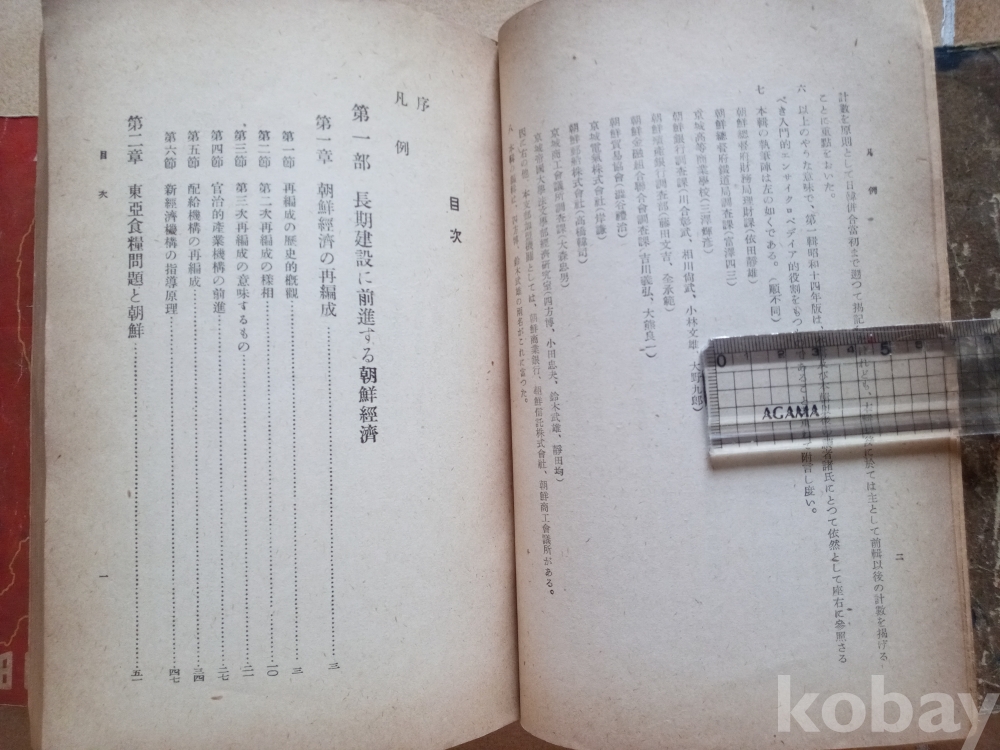 凡例
二
計數を原則として日韓併合當初まで遡つて掲記
れども、
に於ては主として前輯以後の計數を掲げる
ことに重點をおいた。
六 以上のやうた意味で、第一輯昭和十四年版は、
諸氏にとつて依然として座右に參照さる
べき入門的エンサイクロペデイア的役割をもつ
附言し度い。
七 本輯の執筆陣は左の如くである。(順不同)
朝鮮總督府財務局理財課(依田靜雄)
朝鮮總督府鐵道局調査課(富澤四三)
京城高等商業學校(三澤輝造)
朝鮮銀行調査課(川合春武、相川尙武、小林文雄、大野九郎)
朝鮮殖産銀行調査部(藤田文吉、全承範)
朝鮮金融組合聯合會調査課(吉川義弘、大熊良一)
朝鮮貿易協會(澁谷禮治)
朝鮮製鹽株式會社(高橋韓司)
京城電氣株式會社(岸謙)
京城商工會議所調査課(大森忠男)
京城帝國大學法文學部經濟研究室(四方博、小田忠夫、鈴木武雄、靜田均)
朝鮮商業銀行、朝鮮信託株式會社、朝鮮商工會議所がある。
八 本輯の編輯は、四方博、鈴木武雄の兩名がこれに當つた。
目次
序
凡例
第一部 長期建設に前進する朝鮮經濟
第一章 朝鮮經濟の再編成……三
第一節 再編成の歷史的槪觀……三
第二節 第二次再編成の樣相……一〇
第三節 第三次再編成の意味するもの……二一
第四節 官治的產業機構の前進……二七
第五節 配給機構の再編成……三四
第六節 新經濟機構の指導原理……四七
第二章 東亞食糧問題と朝鮮……五一
目次
一
0
3
5
AGAMA
kobay